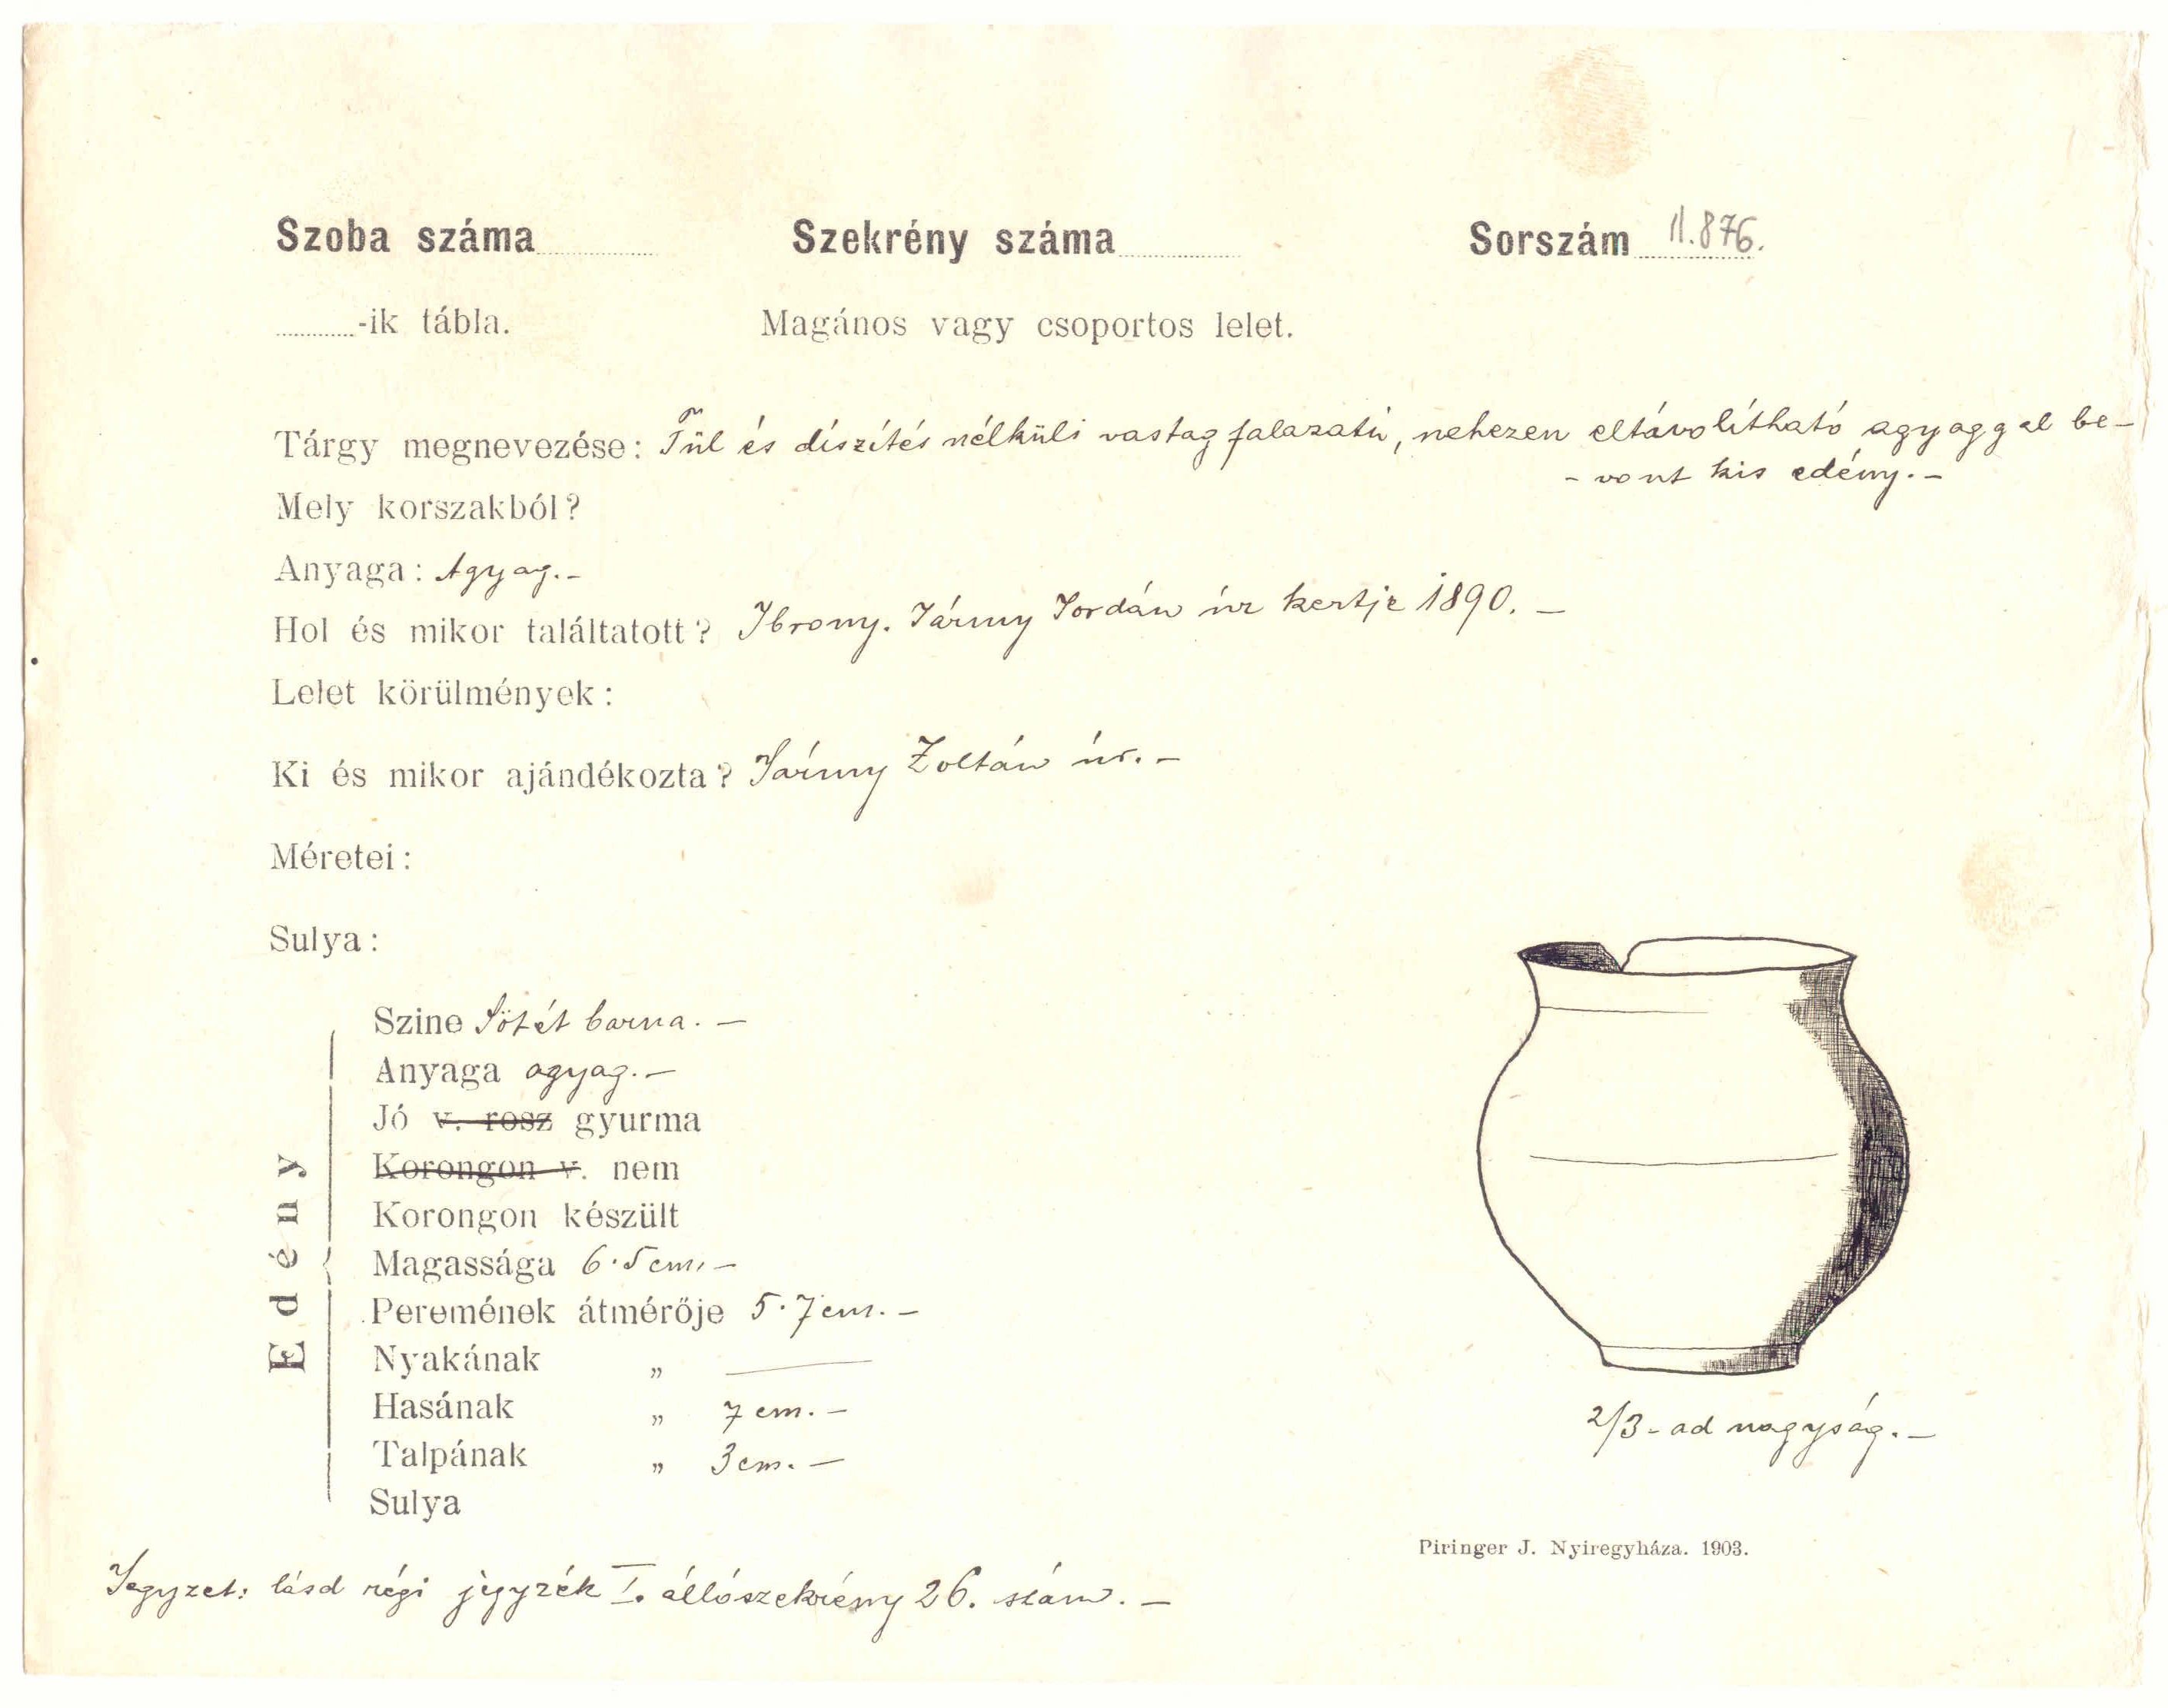 Szoba száma Szekrény száma Sorszám II.876.
-ik tábla. Magános vagy csoportos lelet.
Tárgy megnevezése: Fül és díszítés nélküli vastag falazatú, nehezen eltávolítható agyaggal be-
- vont kis edény. -
Mely korszakból?
Anyaga: Agyag. -
Hol és mikor találtatott? Ibrony. Jármy Jordán úr kertje 1890. -
Lelet körülmények:
Ki és mikor ajándékozta? Jármy Zoltán úr. -
Méretei:
Sulya:
Edény
Szine Sötét barna. -
Anyaga agyag. -
Jó v. rosz gyurma
Korongon v. nem
Korongon készült
Magassága 6·5 cm. -
Peremének átmérője 5·7 cm. -
Nyakának „ —
Hasának „ 7 cm. -
Talpának „ 3 cm. -
Sulya
2/3-ad nagyság. -
Piringer J. Nyiregyháza. 1903.
Jegyzet: lásd régi jegyzék I. állószekrény 26. szám. -